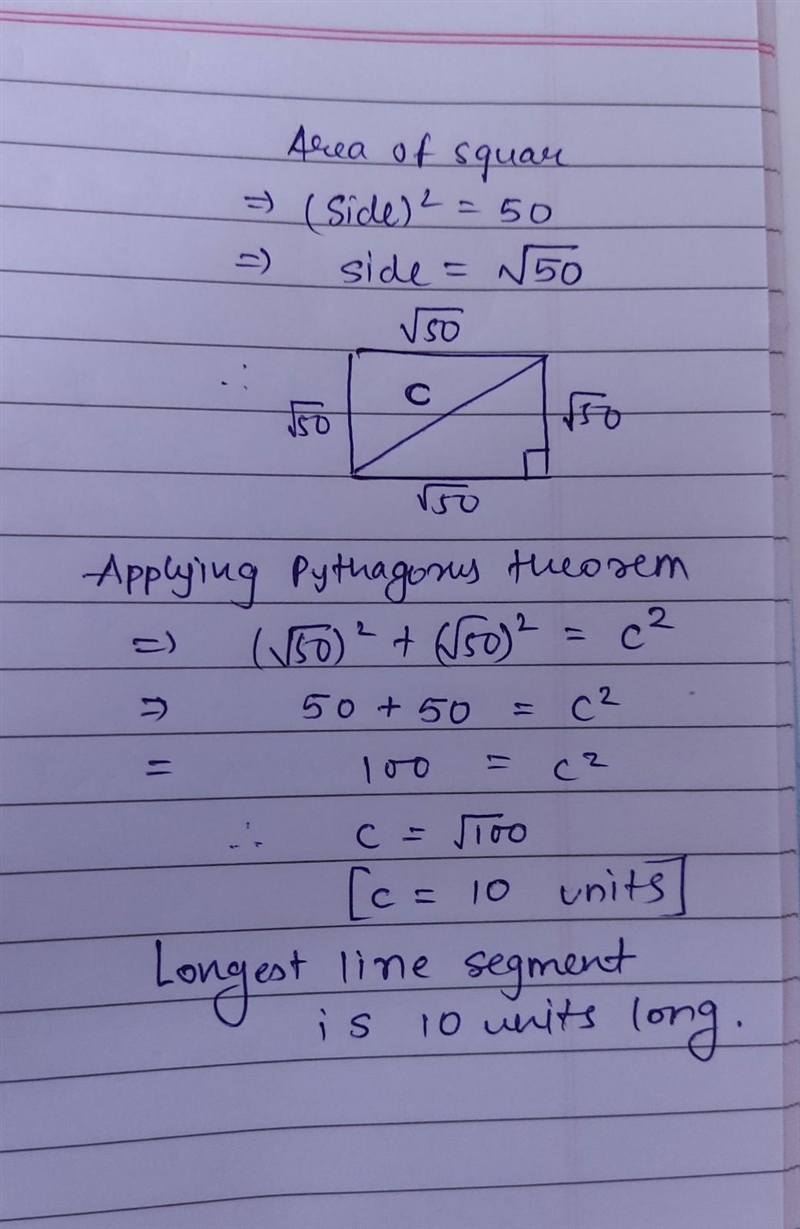 Area of squar
⇒ (Side)² = 50
⇒ side = √50
√50
∴ √50 C √50
√50
Applying Pythagorus theorem
⇒ (√50)² + (√50)² = c²
⇒ 50 + 50 = c²
= 100 = c²
∴ c = √100
[c = 10 units]
Longest line segment
is 10 units long.